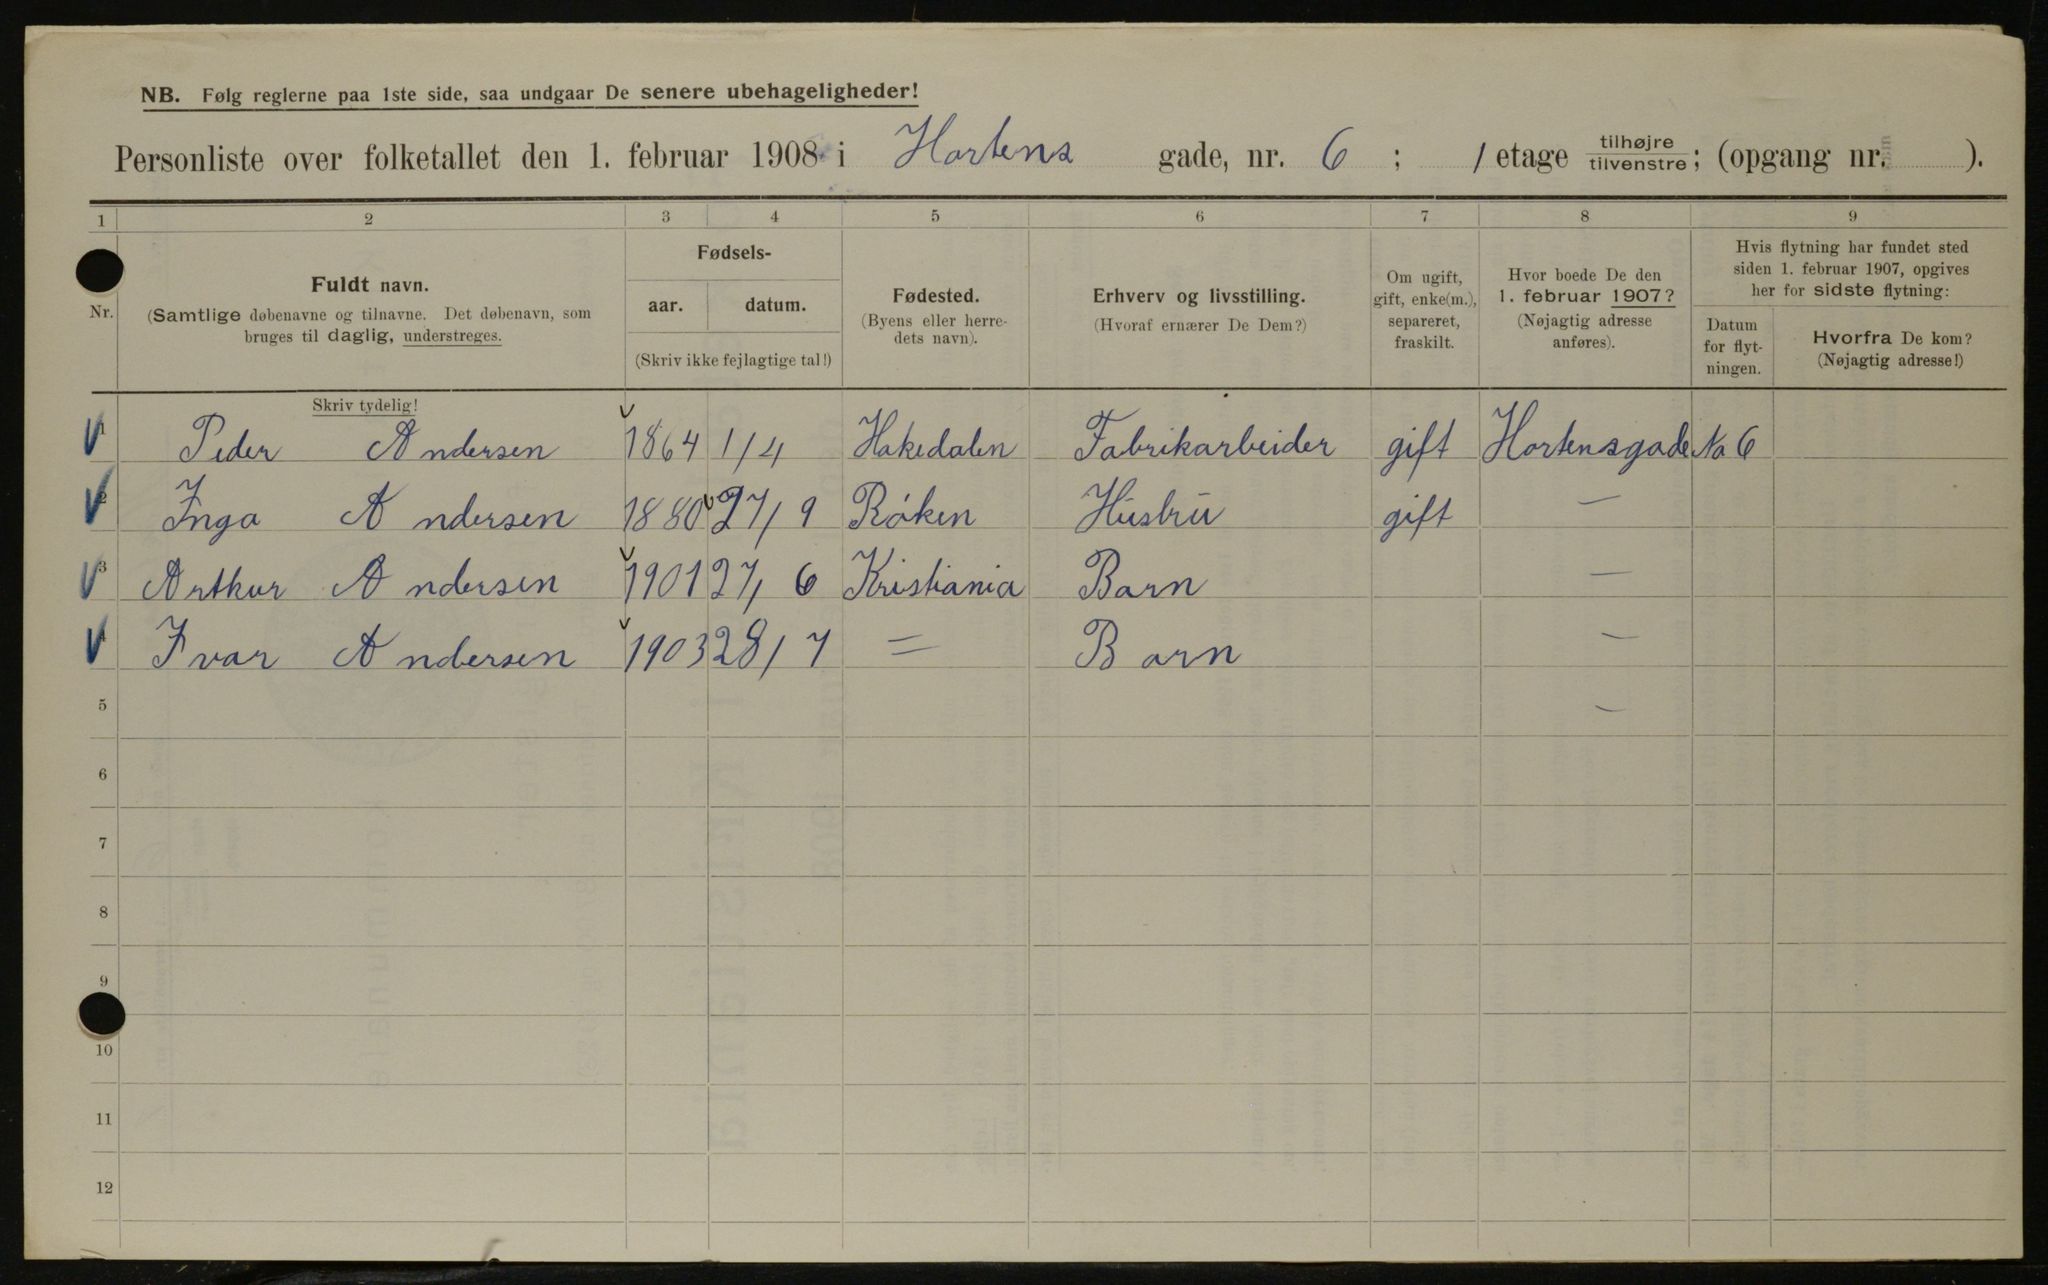 NB. Følg reglerne paa 1ste side, saa undgaar De senere ubehageligheder!
Personliste over folketallet den 1. februar 1908 i Hortens gade, nr. 6 ; 1 etage tilhøjre tilvenstre; (opgang nr. ).
1 2 3 4 5 6 7 8 9
Nr.
Fuldt navn.
(Samtlige døbenavne og tilnavne. Det døbenavn, som
bruges til daglig, understreges.
Fødsels-
aar. datum.
(Skriv ikke fejlagtige tal!)
Fødested.
(Byens eller herre-
dets navn).
Erhverv og livsstilling.
(Hvoraf ernærer De Dem?)
Om ugift,
gift, enke(m.),
separeret,
fraskilt.
Hvor boede De den
1. februar 1907?
(Nøjagtig adresse
anføres).
Hvis flytning har fundet sted
siden 1. februar 1907, opgives
her for sidste flytning:
Datum
for flyt-
ningen.
Hvorfra De kom?
(Nøjagtig adresse!)
Skriv tydelig!
1 Peder Andersen 1864 1/4 Hakedalen Fabrikarbeider gift Hortensgade No 6
2 Inga Andersen 1880 27/9 Røken Hustru gift —
3 Arthur Andersen 1901 27/6 Kristiania Barn —
4 Ivar Andersen 1903 28/7 = Barn —
5 —
6
7
8
9
10
11
12